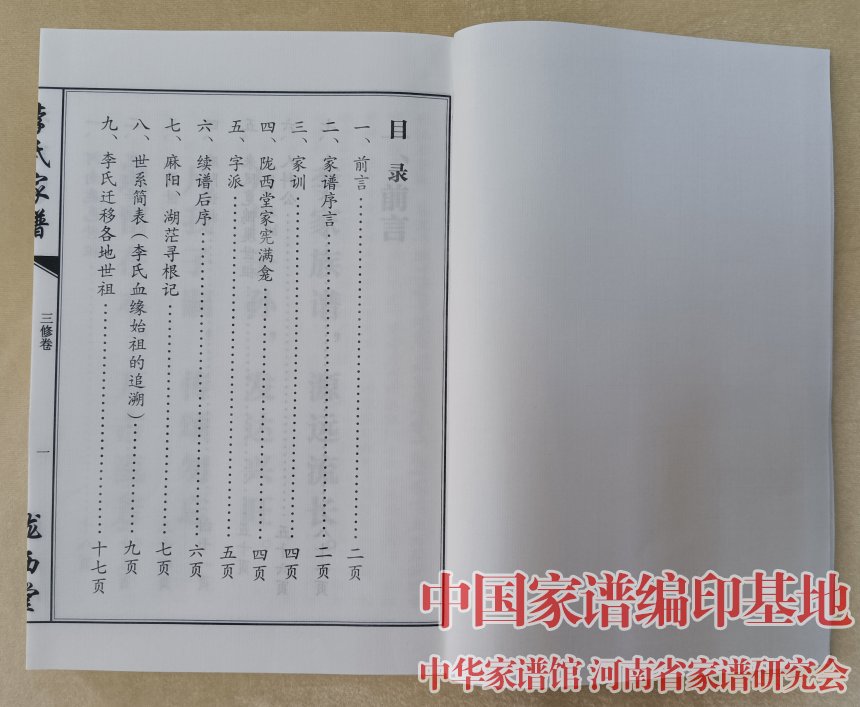 目录
一、前言……………………二页
二、家谱序言……………………二页
三、家训……………………四页
四、陇西堂家宪满龛……………………四页
五、字派……………………五页
六、续谱后序……………………六页
七、麻阳、湖茫寻根记……………………七页
八、世系简表（李氏血缘始祖的追溯）……………………九页
九、李氏迁移各地世祖……………………十七页
李氏家谱
三修卷
一
陇西堂
前言
中国家谱编印基地
中华家谱馆 河南省家谱研究会